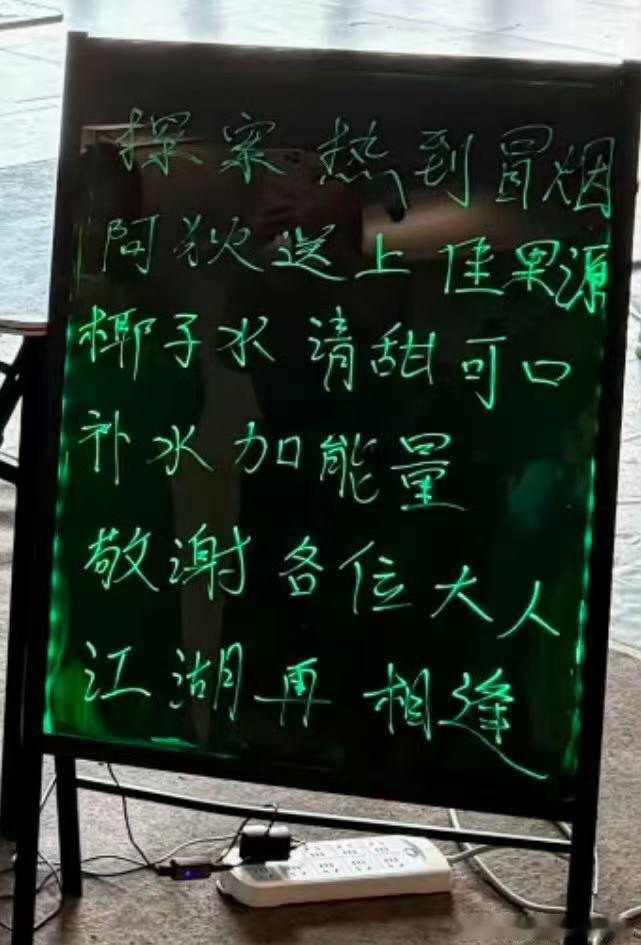 探案 热到冒烟
阿狄送上佳果源
椰子水 清甜可口
补水加能量
敬谢各位大人
江湖再相逢